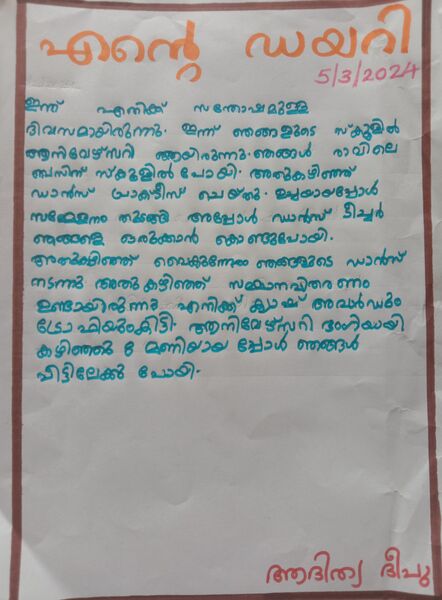 എന്റെ ഡയറി
5/3/2024
ഇന്ന് എനിക്ക് സന്തോഷമുള്ള
ദിവസമായിരുന്നു. ഇന്ന് ഞങ്ങളുടെ സ്കൂളിൽ
ആനിവേഴ്സറി ആയിരുന്നു. ഞങ്ങൾ രാവിലെ
ബസിന് സ്കൂളിൽ പോയി. അതുകഴിഞ്ഞ്
ഡാൻസ് പ്രാക്ടീസ് ചെയ്തു. ഉച്ചയായപ്പോൾ
സമ്മേളനം തുടങ്ങി അപ്പോൾ ഡാൻസ് ടീച്ചർ
ഞങ്ങളെ ഒരുക്കാൻ കൊണ്ടുപോയി.
അതുകഴിഞ്ഞ് വൈകുന്നേരം ഞങ്ങളുടെ ഡാൻസ്
നടന്നു അതു കഴിഞ്ഞ് സമ്മാനവിതരണം
ഉണ്ടായിരുന്നു എനിക്ക് ക്യാഷ് അവാർഡും
ട്രോഫിയുംകിട്ടി. ആനിവേഴ്സറി ഭംഗിയായി
കഴിഞ്ഞു 8 മണിയായപ്പോൾ ഞങ്ങൾ
വീട്ടിലേക്കു പോയി.
ആദിത്യ ദീപു